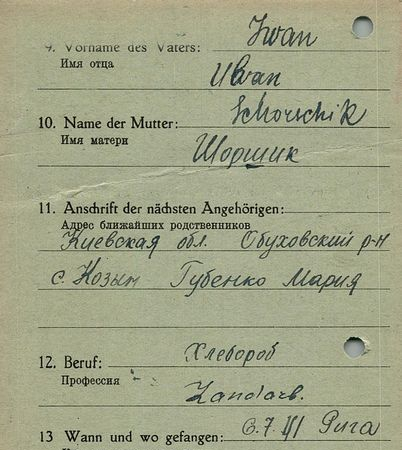 9. Vorname des Vaters: Iwan
Имя отца
Иван
10. Name der Mutter: Schorschik
Имя матери
Шоршик
11. Anschrift der nächsten Angehörigen:
Адрес ближайших родственников
Киевская обл. Обуховский р-н
с. Козын Губенко Мария
12. Beruf: Хлебороб
Профессия
Landarb.
13 Wann und wo gefangen: Рига